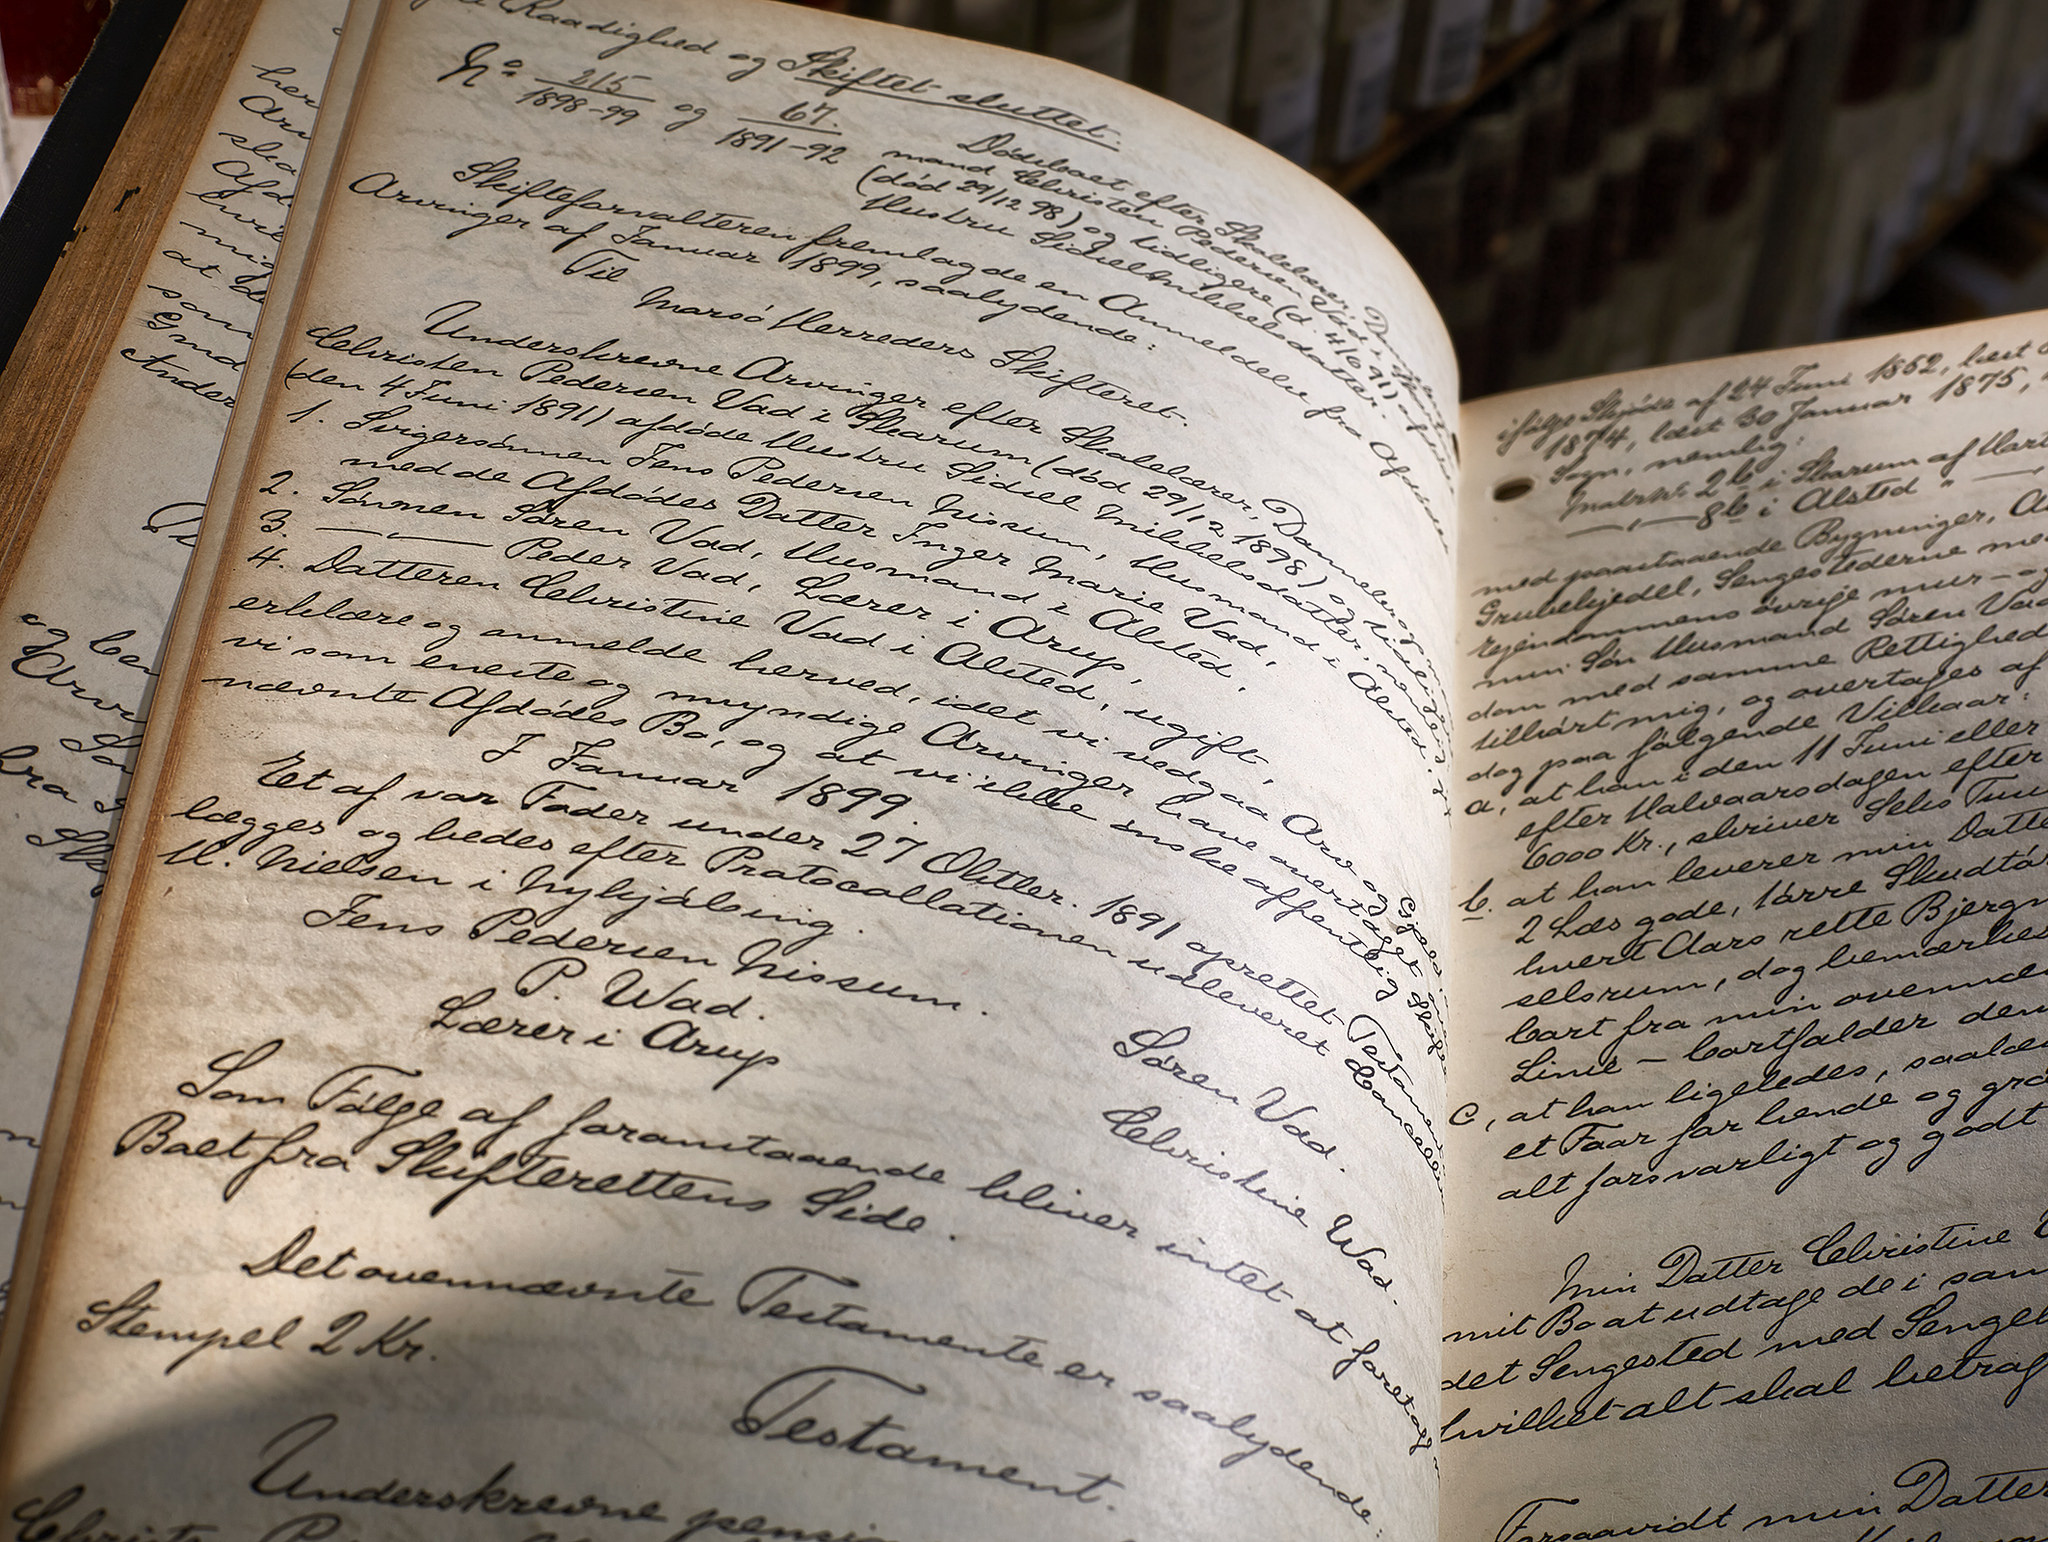 Raadighed og Skiftet sluttet.
No. 215/1898-99 og 67/1891-92
Dødsboet efter Skolelærer, Dannebrogs-
mand Christen Pedersen Vad i Skarum
(død 29/12 98) og tidligere (d. 4/6 91) afdøde
Hustru Sidsel Mikkelsdatter.
Skifteforvalteren fremlagde en Anmeldelse fra Afdødes
Arvinger af Januar 1899, saalydende:
Til Morsø Herreders Skifteret.
Underskrevne Arvinger efter Skolelærer, Dannebrogsmand
Christen Pedersen Vad i Skarum (død 29/12 1898) og tidligere
(den 4 Juni 1891) afdøde Hustru Sidsel Mikkelsdatter, nemlig
1. Svigersønnen Jens Pedersen Nissum, Husmand i Alsted, gift
med de Afdødes Datter Inger Marie Vad,
2. Sønnen Søren Vad, Husmand i Alsted,
3. — „ — Peder Vad, Lærer i Arup,
4. Datteren Christine Vad i Alsted, ugift,
erklære og anmelde herved, idet vi vedgaa Arv og Gjæld,
vi som eneste og myndige Arvinger have overtaget
nævnte Afdødes Bo, og at vi ikke ønske offentlig Skifte
I Januar 1899.
Et af vor Fader under 27 Oktbr. 1891 oprettet Testament
lægges og bedes efter Protocollationen udleveret Cancelliraad
H. Nielsen i Nykjøbing.
Jens Pedersen Nissum.
Søren Vad.
P. Wad.
Lærer i Arup
Christine Wad.
Som Følge af foranstaaende bliver intet at foretage
Boet fra Skifterettens Side.
Det ovennævnte Testamente er saalydende:
Stempel 2 Kr.
Testament.
Underskrevne
her
ska
Afd
mig
at de
som
Grud
Ander
og
Arvi
ifølge Skjøde af 24 Juni 1852, læst
1874, læst 30 Januar 1875,
Sogn, nemlig:
Matr. Nr. 2b i Skarum af Hart
— „ — 8b i Alsted „ —
med paastaaende Bygninger,
Grubekjedel, Sengestederne med
ejendommens øvrige mur- og
min Søn Husmand Søren Vad
dom med samme Rettighed
tilhørt mig, og overtages af
dog paa følgende Vilkaar:
a, at han i den 11 Juni eller
efter Halvaarsdagen efter
6000 Kr., skriver Seks Tusi
b. at han leverer min Datte
2 Læs gode, tørre Skudtør
hvert Aars rette Bjergn
selsrum, dog bemærkes
bort fra min ovennæv
Linie – bortfalder den
c, at han ligeledes, saalæ
et Faar for hende og græ
alt forsvarligt og godt
Min Datter Christine
mit Bo at udtage de i sam
det Sengested med Senge
hvilket alt skal betrag
Forsaavidt min Datter